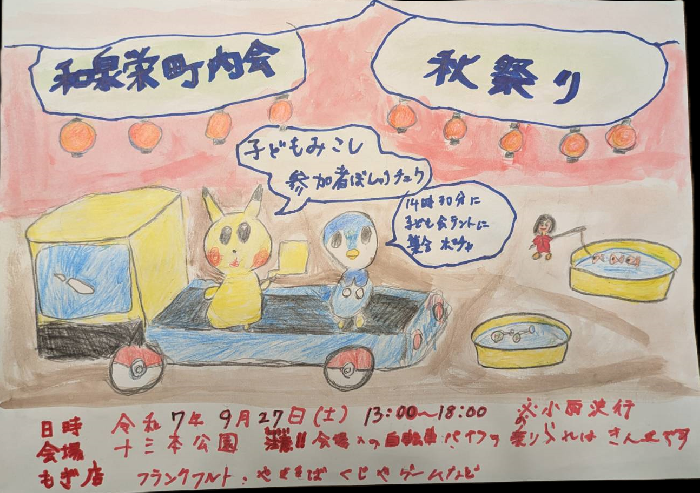 和泉栄町内会
秋祭り
子どもみこし
参加者ぼしゅうチュウ
14時30分に
子ども会テントに
集合 ポッチャ
日時 令和7年9月27日(土) 13:00〜18:00 ※小雨決行
会場 十三本公園 注意!! 会場への自転車・バイクの乗り入れはきんしです
もぎ店 フランクフルト・やきそば くじやゲームなど